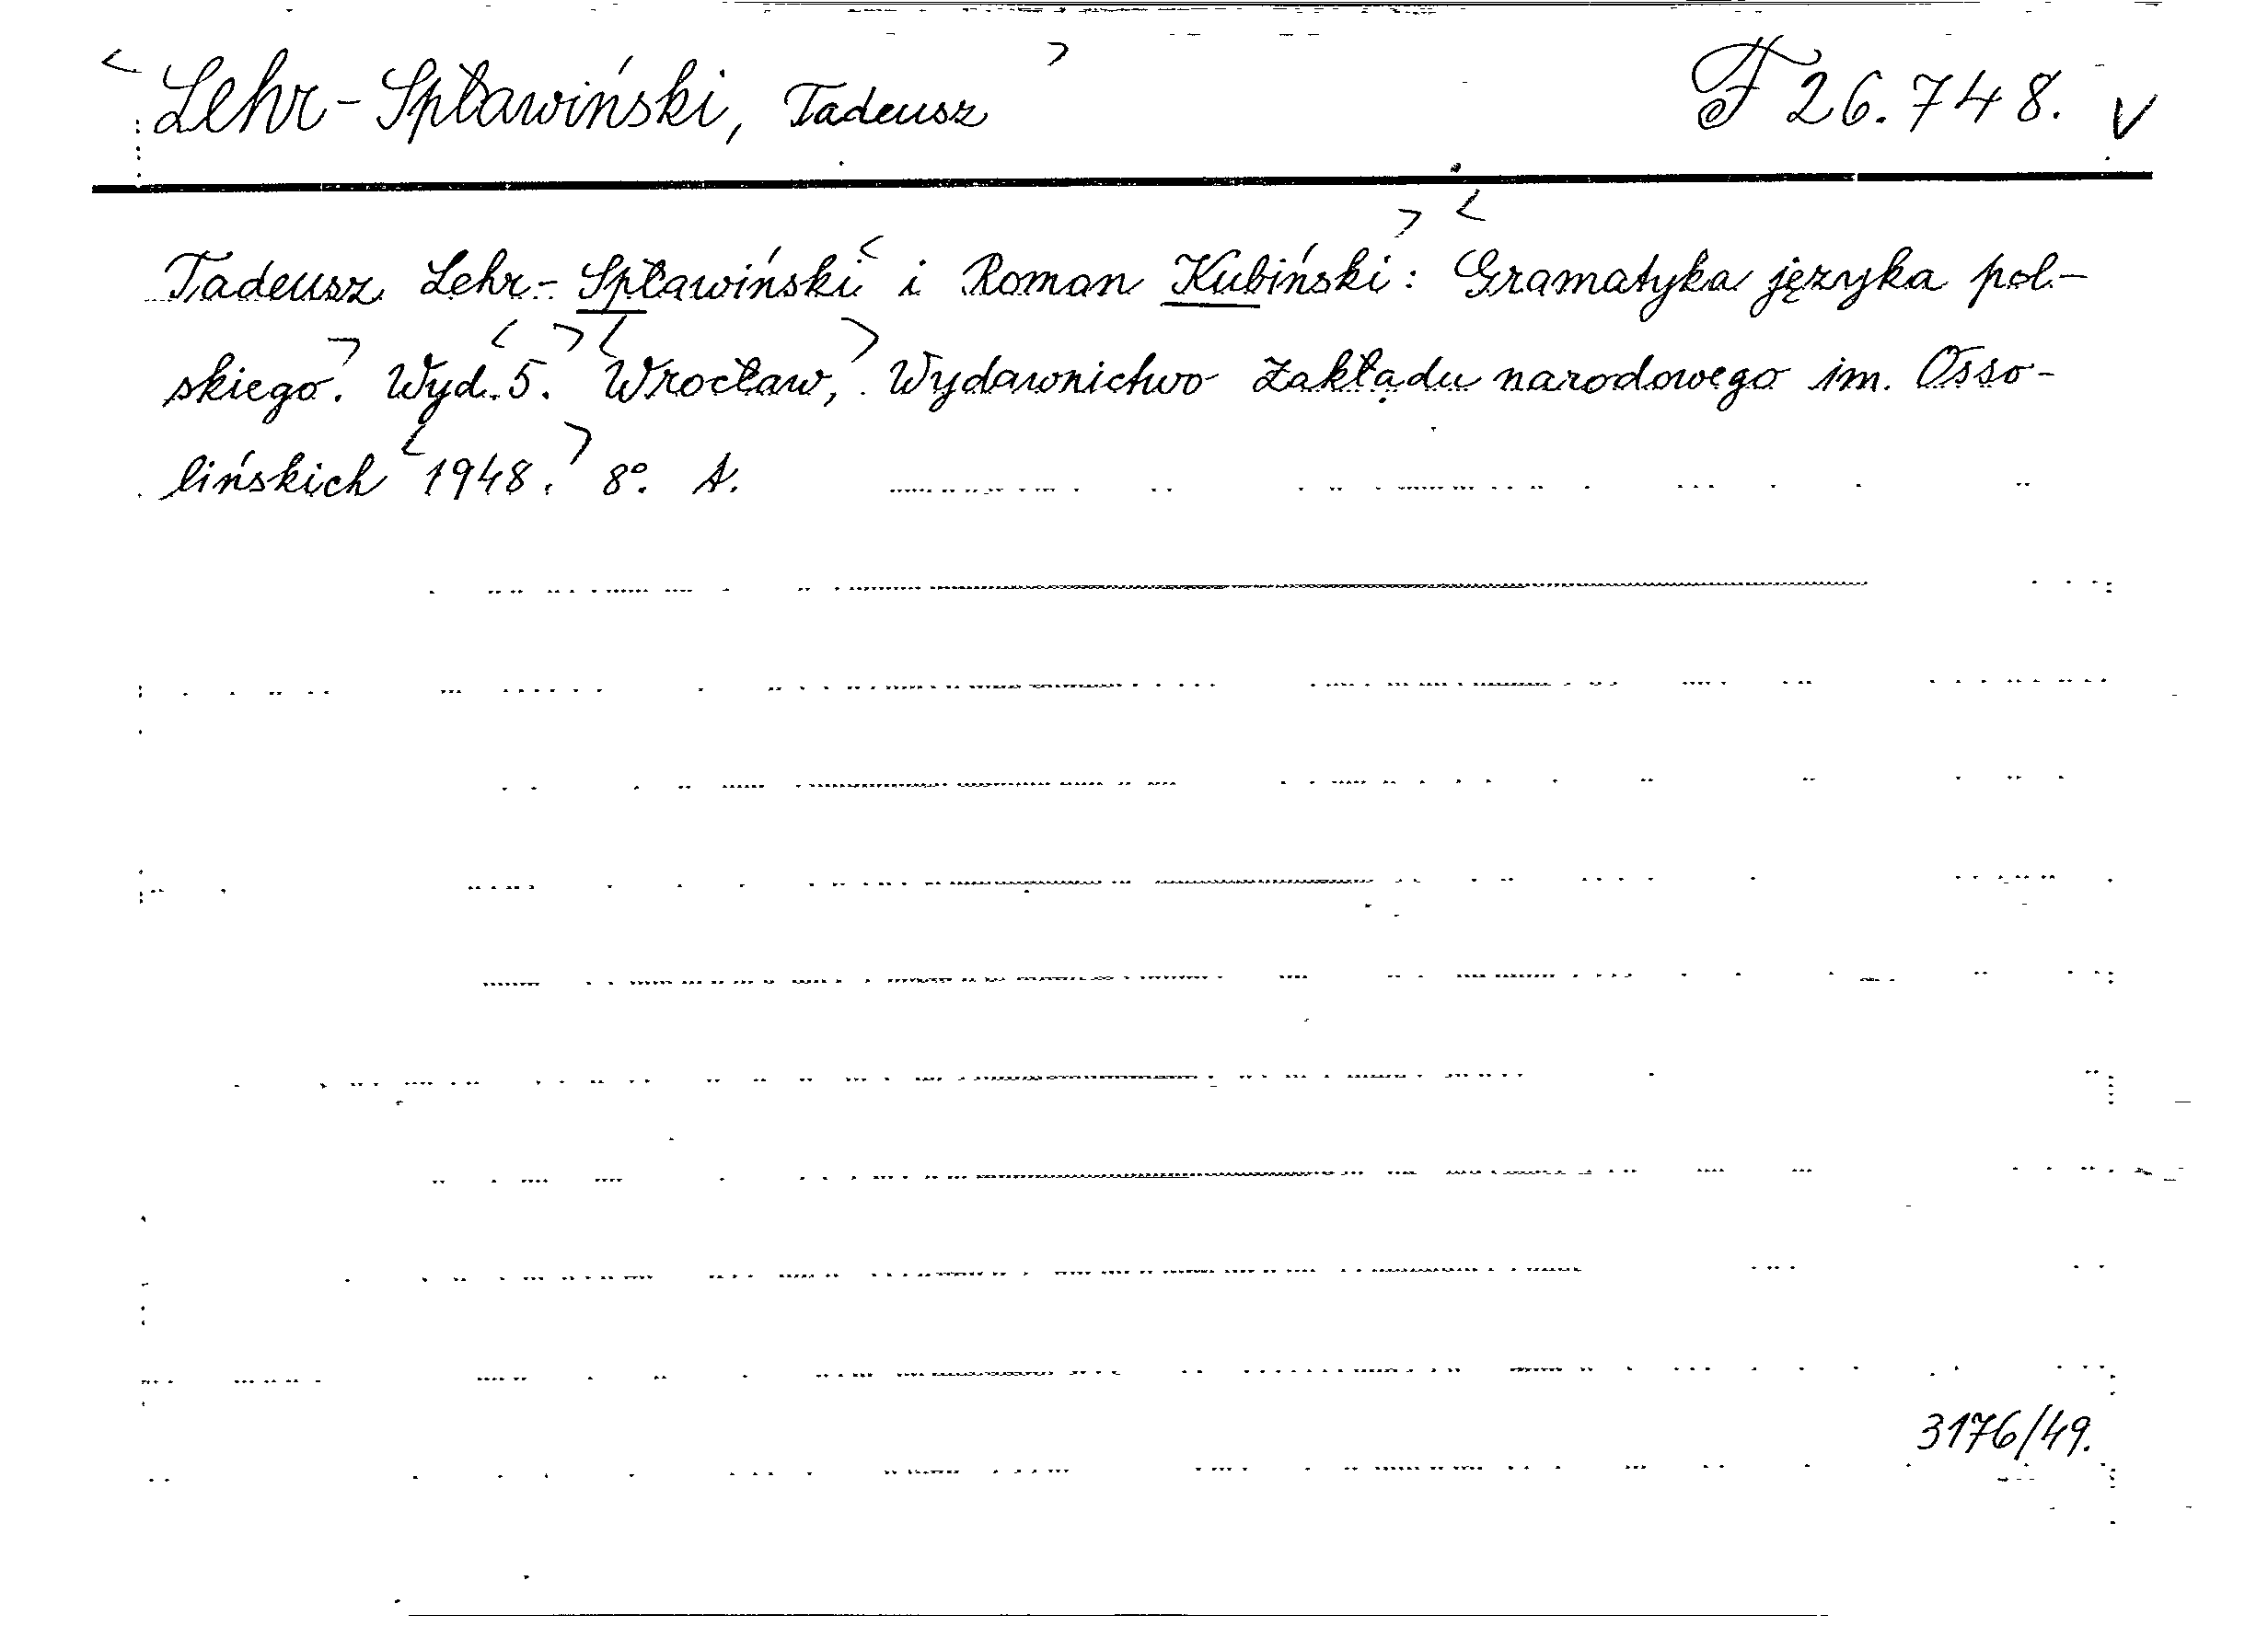 Lehr-Spławiński, Tadeusz F 26.748. V
Tadeusz Lehr-Spławiński i Roman Kubiński: Gramatyka języka pol-
skiego. Wyd. 5. Wrocław, Wydawnictwo Zakładu narodowego im. Osso-
lińskich 1948. 8°. A.
3176/49.